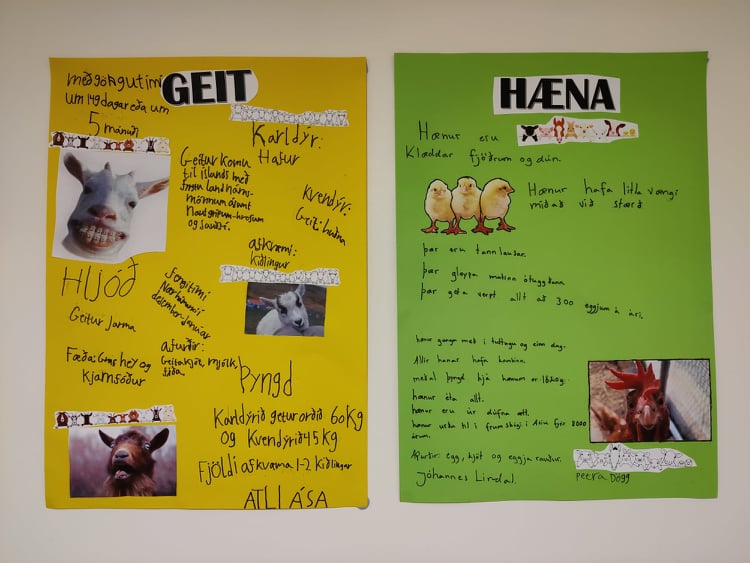 meðgöngutími
um 149 dagar eða um
5 mánuði
GEIT
Karldýr:
Hafur
Geitur komu
til íslands með
land náms-
mönnum ásamt
Nautgripum-hrossum
og sauðfé.
Kvendýr:
Geit-huðna
afkvæmi:
kiðlingur
Hljóð
Geitur Jarma
fengitími
desember-Janúar
Fæða: Gras hey og
kjarnfóður
afurðir:
Geitakjöt, mjólk,
Þyngd
Karldýrið getur orðið 60 kg
og Kvendýrið 45 kg
Fjöldi afkvæma 1-2 kiðlingar
ATLI ÁSA
HÆNA
Hænur eru
Klæddar fjöðrum og dún.
Hænur hafa litla vængi
miðað við stærð
þær eru tannlausar.
Þær gleypa matinn ótuggðann.
Þær geta verpt allt að 300 eggjum á ári.
hænur ganga með í tuttugu og einn dag.
Allir hanar hafa kambinn.
meðal þyngd hjá hænum er 1,8 kg.
hænur éta allt.
hænur eru úr dúfna ætt.
hænur urðu til í frumskógi í Asíu fyrir 8000
árum.
Afurðir: egg, kjöt og eggja rauður.
Jóhannes Lindal.
Petra Dögg